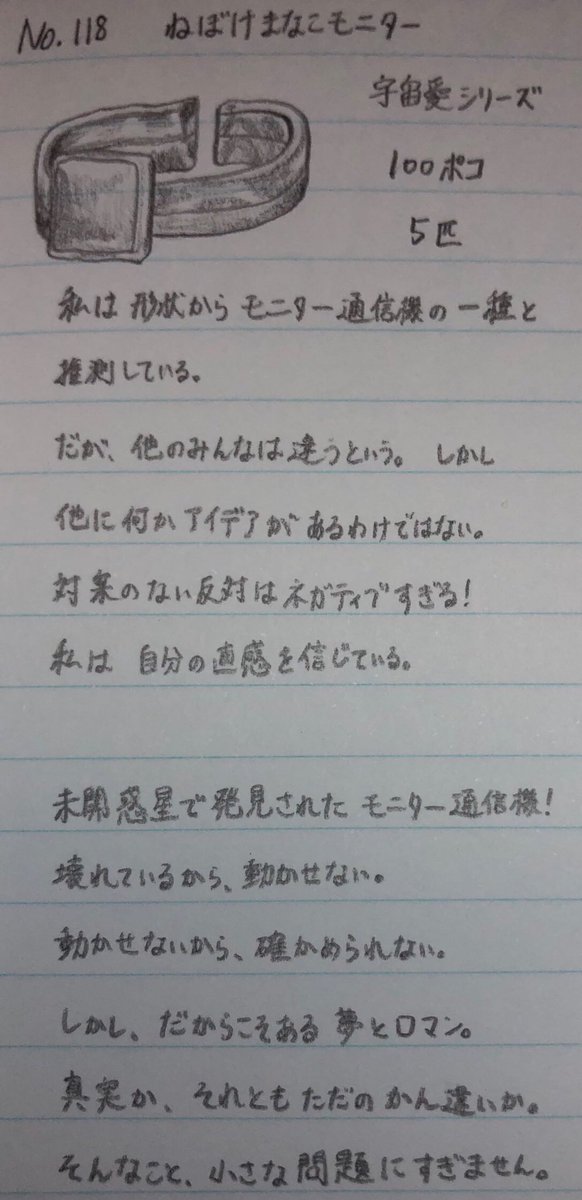 No.118 ねぼけまなこモニター
宇宙愛シリーズ
100ポコ
5匹
私は形状からモニター通信機の一種と
推測している。
だが、他のみんなは違うという。しかし
他に何かアイデアがあるわけではない。
対案のない反対はネガティブすぎる!
私は自分の直感を信じている。
未開惑星で発見されたモニター通信機!
壊れているから、動かせない。
動かせないから、確かめられない。
しかし、だからこそある夢とロマン。
真実か、それともただのかん違いか。
そんなこと、小さな問題にすぎません。